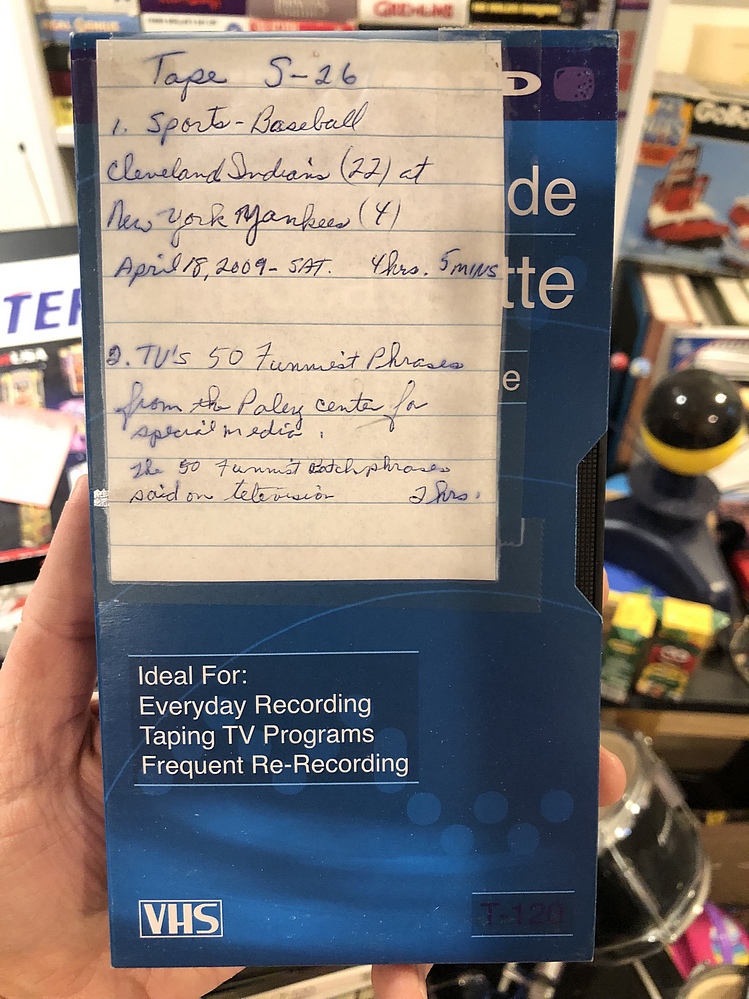 GREMLINS
Tape S-26
D
1. Sports-Baseball
Cleveland Indians (22) at
New York Yankees (4)
April 18, 2009- SAT. 4hrs. 5 MINS
de
tte
e
2. TV's 50 Funniest Phrases
from the Paley center for
special media.
The 50 Funnist catchphrases
said on television 2 hrs.
Ideal For:
Everyday Recording
Taping TV Programs
Frequent Re-Recording
VHS
T-120
TER
USA
GoBo